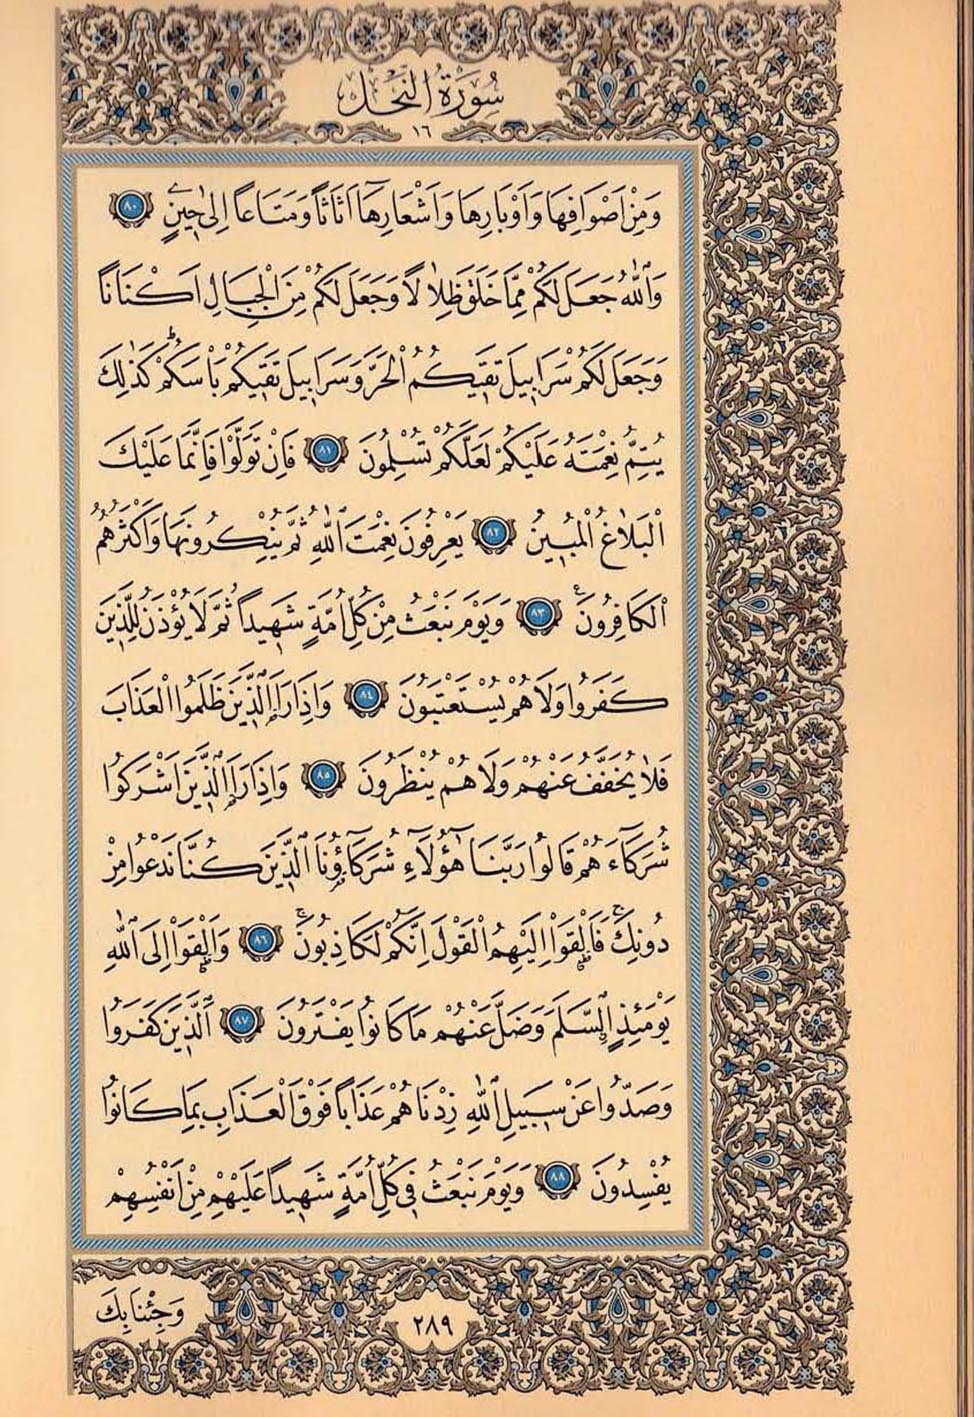 سُورَةُ النَّحْلِ
١٦
وَمِنْ اَصْوَافِهَا وَاَوْبَارِهَا وَاَشْعَارِهَٓا اَثَاثًا وَمَتَاعًا اِلٰى ح۪ينٍ ٨٠
وَاللّٰهُ جَعَلَ لَكُمْ مِمَّا خَلَقَ ظِلَالًا وَجَعَلَ لَكُمْ مِنَ الْجِبَالِ اَكْنَانًا
وَجَعَلَ لَكُمْ سَرَاب۪يلَ تَق۪يكُمُ الْحَرَّ وَسَرَاب۪يلَ تَق۪يكُمْ بَأْسَكُمْۜ كَذٰلِكَ
يُتِمُّ نِعْمَتَهُ عَلَيْكُمْ لَعَلَّكُمْ تُسْلِمُونَ ٨١ فَاِنْ تَوَلَّوْا فَاِنَّمَا عَلَيْكَ
الْبَلَاغُ الْمُب۪ينُ ٨٢ يَعْرِفُونَ نِعْمَتَ اللّٰهِ ثُمَّ يُنْكِرُونَهَا وَاَكْثَرُهُمُ
الْكَافِرُونَ۟ ٨٣ وَيَوْمَ نَبْعَثُ مِنْ كُلِّ اُمَّةٍ شَه۪يدًا ثُمَّ لَا يُؤْذَنُ لِلَّذ۪ينَ
كَفَرُوا وَلَا هُمْ يُسْتَعْتَبُونَ ٨٤ وَاِذَا رَاَ الَّذ۪ينَ ظَلَمُوا الْعَذَابَ
فَلَا يُخَفَّفُ عَنْهُمْ وَلَا هُمْ يُنْظَرُونَ ٨٥ وَاِذَا رَاَ الَّذ۪ينَ اَشْرَكُوا
شُرَكَٓاءَهُمْ قَالُوا رَبَّنَا هٰٓؤُ۬لَٓاءِ شُرَكَٓاؤُ۬نَا الَّذ۪ينَ كُنَّا نَدْعُوا مِنْ
دُونِكَۚ فَاَلْقَوْا اِلَيْهِمُ الْقَوْلَ اِنَّكُمْ لَكَاذِبُونَۚ ٨٦ وَاَلْقَوْا اِلَى اللّٰهِ
يَوْمَئِذٍ السَّلَمَ وَضَلَّ عَنْهُمْ مَا كَانُوا يَفْتَرُونَ ٨٧ اَلَّذ۪ينَ كَفَرُوا
وَصَدُّوا عَنْ سَب۪يلِ اللّٰهِ زِدْنَاهُمْ عَذَابًا فَوْقَ الْعَذَابِ بِمَا كَانُوا
يُفْسِدُونَ ٨٨ وَيَوْمَ نَبْعَثُ ف۪ي كُلِّ اُمَّةٍ شَه۪يدًا عَلَيْهِمْ مِنْ اَنْفُسِهِمْ
وَجِئْنَا بِكَ
٢٨٩